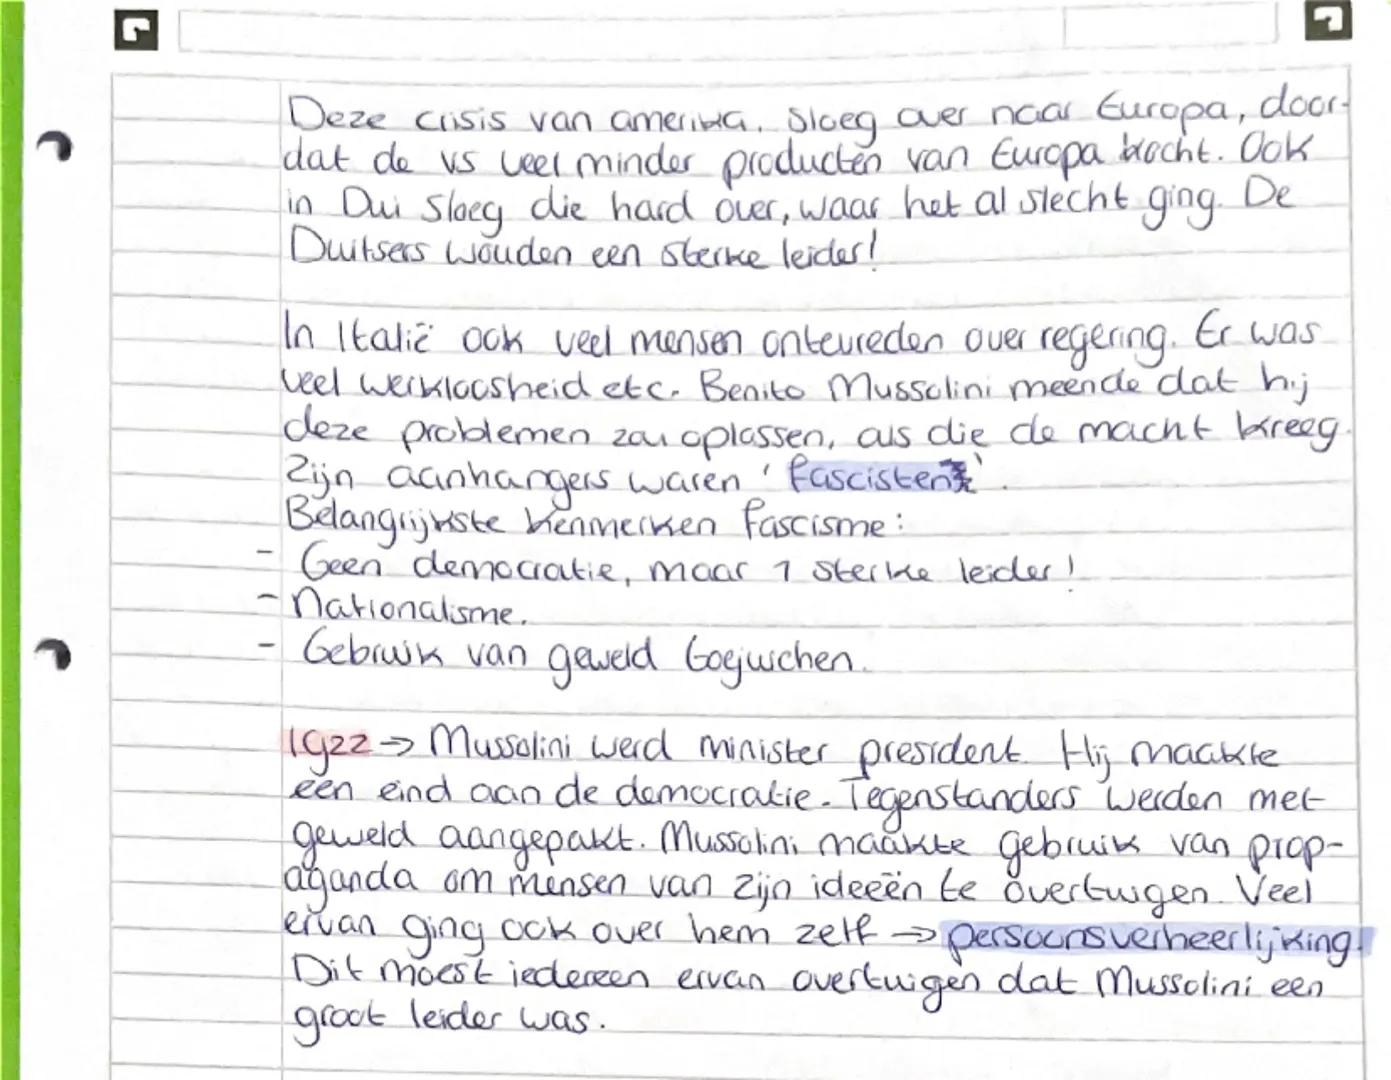 Deze crisis van amerika. Sloeg over naar Europa, door-
dat de VS veel minder producten van Europa kocht. Ook
in Dui sloeg die hard over, waar het al slecht ging. De
Duitsers wouden een sterke leider!
In Italië ook veel mensen ontevreden over regering. Er was
veel werkloosheid etc. Benito Mussolini meende dat hij
deze problemen zou oplossen, als die de macht kreeg.
Zijn aanhangers waren 'fascisten'.
Belangrijkste kenmerken fascisme:
- Geen democratie, maar 1 sterke leider!
- Nationalisme.
- Gebruik van geweld toejuichen.
1922 → Mussolini werd minister president. Hij maakte
een eind aan de democratie. Tegenstanders werden met
geweld aangepakt. Mussolini maakte gebruik van prop-
aganda om mensen van zijn ideeën te overtuigen. Veel
ervan ging ook over hem zelf → persoonsverheerlijking!
Dit moest iedereen ervan overtuigen dat Mussolini een
groot leider was.